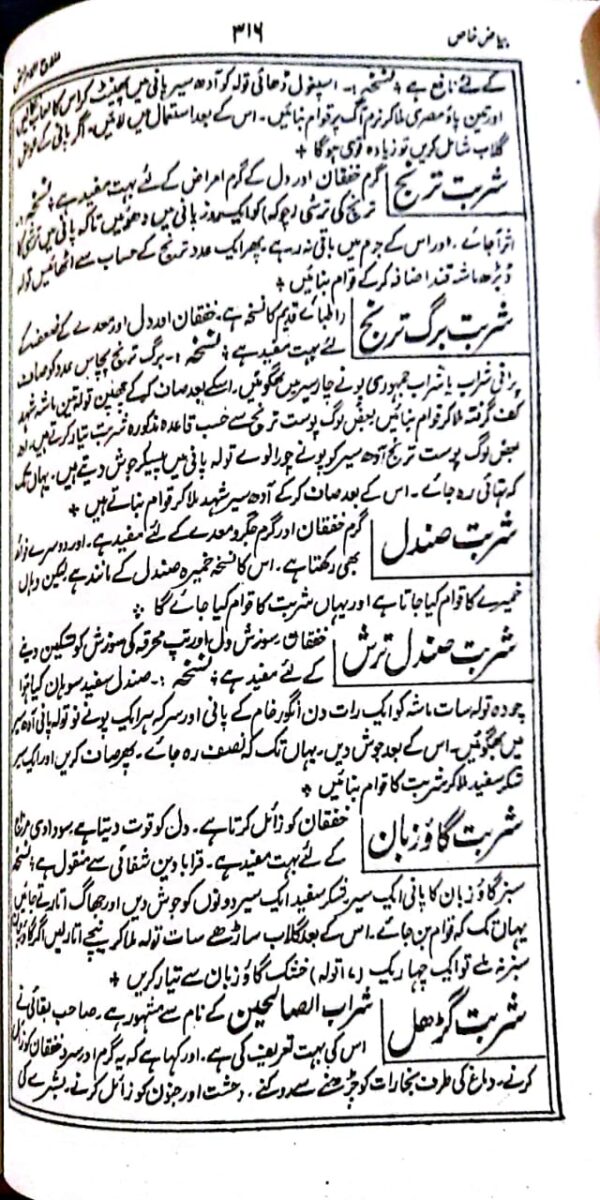 بیاض خاص
۳۱۶
علاج الامراض
کے لئے نافع ہے ؞ نسخہ :۔ اسپغول ڈھائی تولہ کو آدھ سیر پانی میں پھینٹ کر اس کا لعاب نکالیں
اور تین پاؤ مصری ملا کر نرم آگ پر قوام بنائیں۔ اس کے بعد استعمال میں لائیں۔ اگر پانی کے عوض
گلاب شامل کریں تو زیادہ قوی ہوگا ؞
شربت ترنج
گرم خفقان اور دل کے گرم امراض کے لئے بہت مفید ہے ؞ نسخہ :۔
ترنج کی ترشی (چوکہ) کو ایک روز پانی میں دھوئیں تاکہ پانی میں ترشی کا
اثر آجائے۔ اور اس کے جرم میں باقی نہ رہے۔ پھر ایک عدد ترنج کے حساب سے اٹھائیس تولہ
ڈیڑھ ماشہ قند اضافہ کر کے قوام بنائیں ؞
شربت برگ ترنج
(اطبائے قدیم کا نسخہ ہے۔ خفقان اور دل اور معدے کے ضعف کے
لئے بہت مفید ہے ؞ نسخہ :۔ برگ ترنج پچاس عدد کو صاف
پرانی شراب یا شراب جمہوری پونے چار سیر میں بھگوئیں۔ اسکے بعد صاف کر کے چھپن تولہ تین ماشہ شہد
کف گرفتہ ملا کر قوام بنائیں بعض لوگ پوست ترنج سے حسب قاعدہ مذکورہ شربت تیار کرتے ہیں۔ اور
بعض لوگ پوست ترنج آدھ سیر کو پونے چورانوے تولہ پانی میں پیسکر جوش دیتے ہیں۔ یہاں تک
کہ تہائی رہ جائے۔ اس کے بعد صاف کر کے آدھ سیر شہد ملا کر قوام بناتے ہیں ؞
شربت صندل
گرم خفقان اور گرم جگر و معدے کے لئے مفید ہے۔ اور دوسرے فوائد
بھی رکھتا ہے۔ اس کا نسخہ خمیرہ صندل کے مانند ہے لیکن وہاں
خمیرے کا قوام کیا جاتا ہے اور یہاں شربت کا قوام کیا جائے گا ؞
شربت صندل ترش
خفقان۔ سوزش دل اور تپ محرقہ کی سوزش کو تسکین دینے
کے لئے مفید ہے ؞ نسخہ :۔ صندل سفید سوہان کیا ہوا
چودہ تولہ سات ماشہ کو ایک رات دن انگور خام کے پانی اور سرکہ ہر ایک پونے نو تولہ پانی آدھ سیر
میں بھگوئیں۔ اس کے بعد جوش دیں۔ یہاں تک کہ نصف رہ جائے۔ پھر صاف کریں اور ایک سیر
شکر سفید ملا کر شربت کا قوام بنائیں ؞
شربت گاؤزبان
خفقان کو زائل کرتا ہے۔ دل کو قوت دیتا ہے۔ سوداوی مزاج
کے لئے بہت مفید ہے۔ قرابادین شفائی سے منقول ہے ؞ نسخہ
سبز گاؤزبان کا پانی ایک سیر۔ شکر سفید ایک سیر دونوں کو جوش دیں اور جھاگ اتارتے جائیں
یہاں تک کہ قوام بن جائے۔ اس کے بعد گلاب ساڑھے سات تولہ ملا کر نیچے اتار لیں اگر گاؤزبان
سبز نہ ملے تو ایک چہاریک (۱۷ تولہ) خشک گاؤزبان سے تیار کریں ؞
شربت گڑھل
شراب الصالحین کے نام سے مشہور ہے۔ صاحب بقائی نے
اس کی بہت تعریف کی ہے۔ اور کہا ہے کہ یہ گرم اور سرد خفقان کو زائل
کرنے۔ دماغ کی طرف بخارات کو چڑھنے سے روکنے۔ وحشت اور جنون کو زائل کرنے۔ بشرے کی